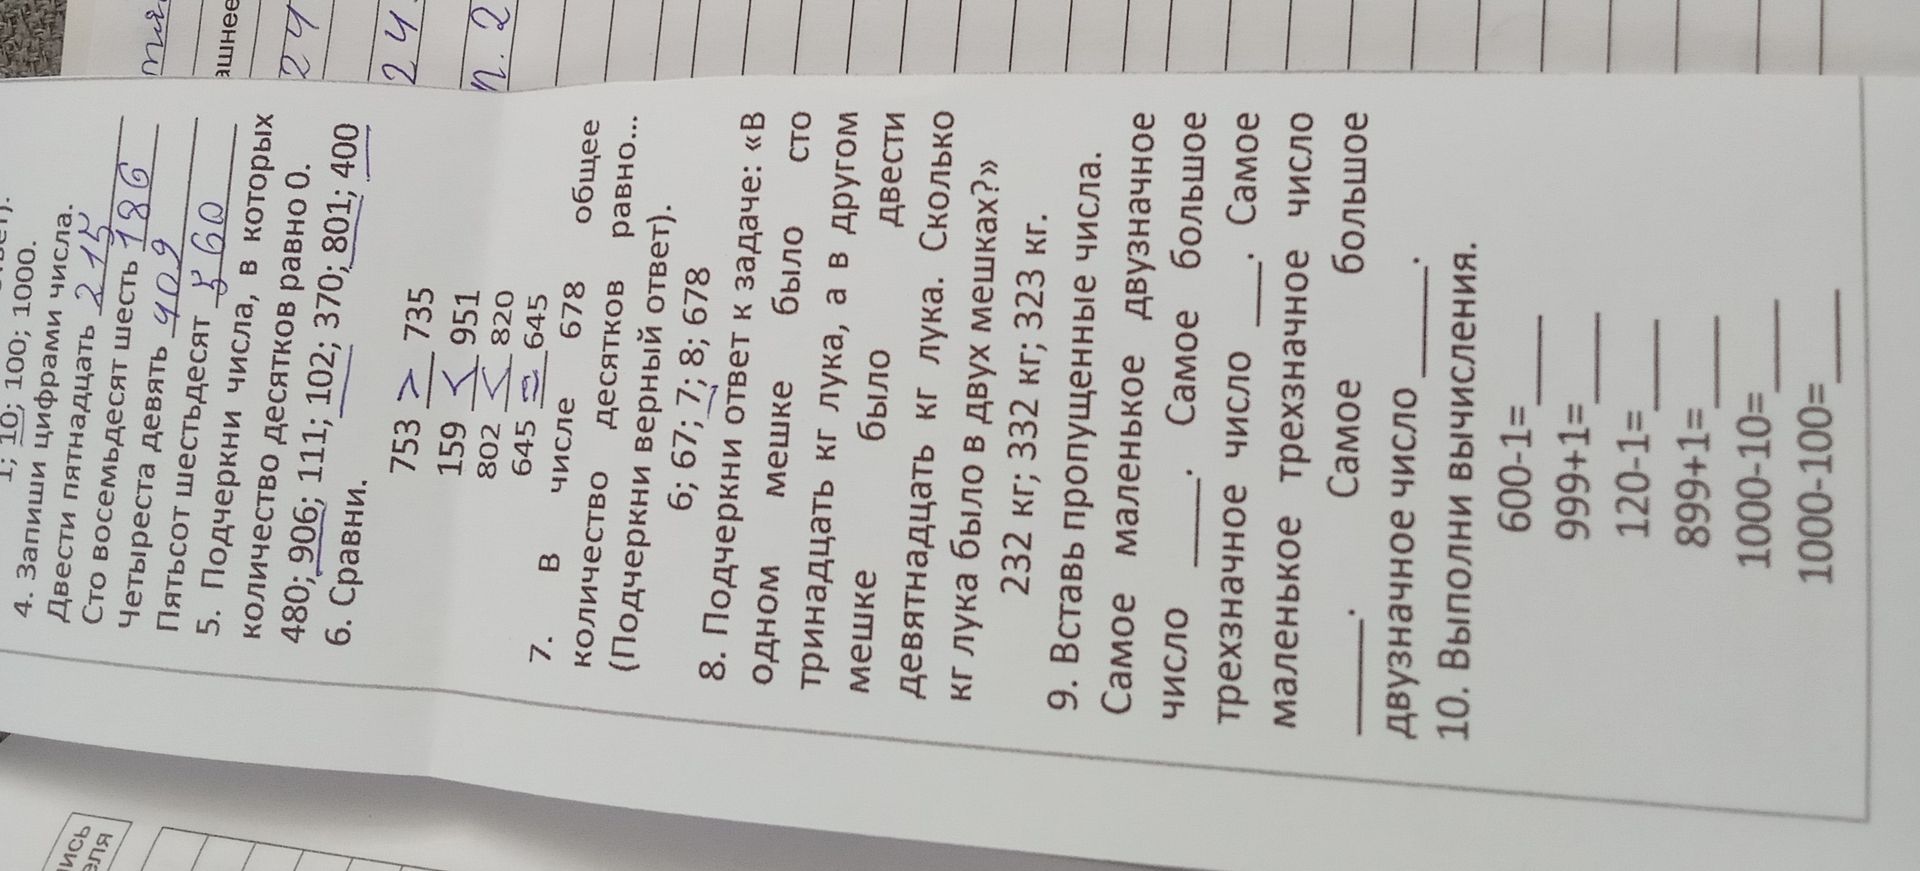 1; 10; 100; 1000.
4. Запиши цифрами числа.
Двести пятнадцать 215
Сто восемьдесят шесть 186
Четыреста девять 409
Пятьсот шестьдесят 560
5. Подчеркни числа, в которых
количество десятков равно 0.
480; 906; 111; 102; 370; 801; 400
6. Сравни.
753 > 735
159 < 951
802 < 820
645 = 645
7. В числе 678 общее
количество десятков равно...
(Подчеркни верный ответ).
6; 67; 7; 8; 678
8. Подчеркни ответ к задаче: «В
одном мешке было сто
тринадцать кг лука, а в другом
мешке было двести
девятнадцать кг лука. Сколько
кг лука было в двух мешках?»
232 кг; 332 кг; 323 кг.
9. Вставь пропущенные числа.
Самое маленькое двузначное
число ____. Самое большое
трехзначное число ___. Самое
маленькое трехзначное число
_____. Самое большое
двузначное число _____.
10. Выполни вычисления.
600-1=____
999+1=____
120-1=____
899+1=____
1000-10=____
1000-100=____
24
24
п. 2